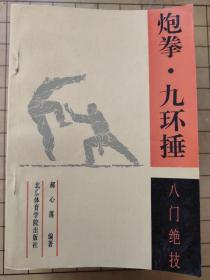 炮拳·九环捶
八门绝技
郝心莲 编著
北京体育学院出版社